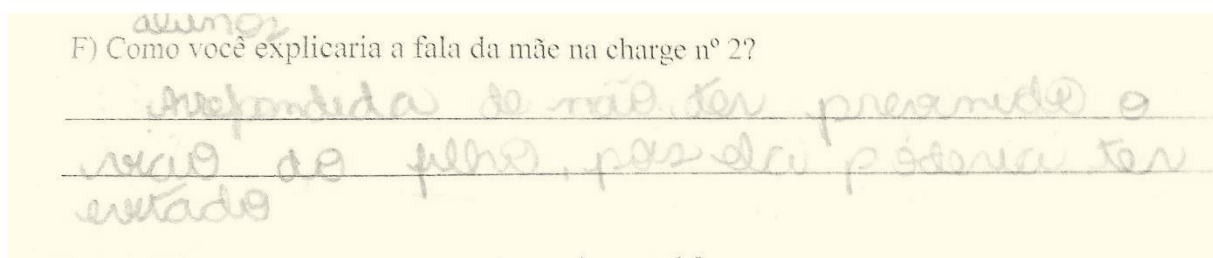 alunos
F) Como você explicaria a fala da mãe na charge nº 2?
Arrependida de não ter prevenido o
vicio do filho, pois ela poderia ter
evitado